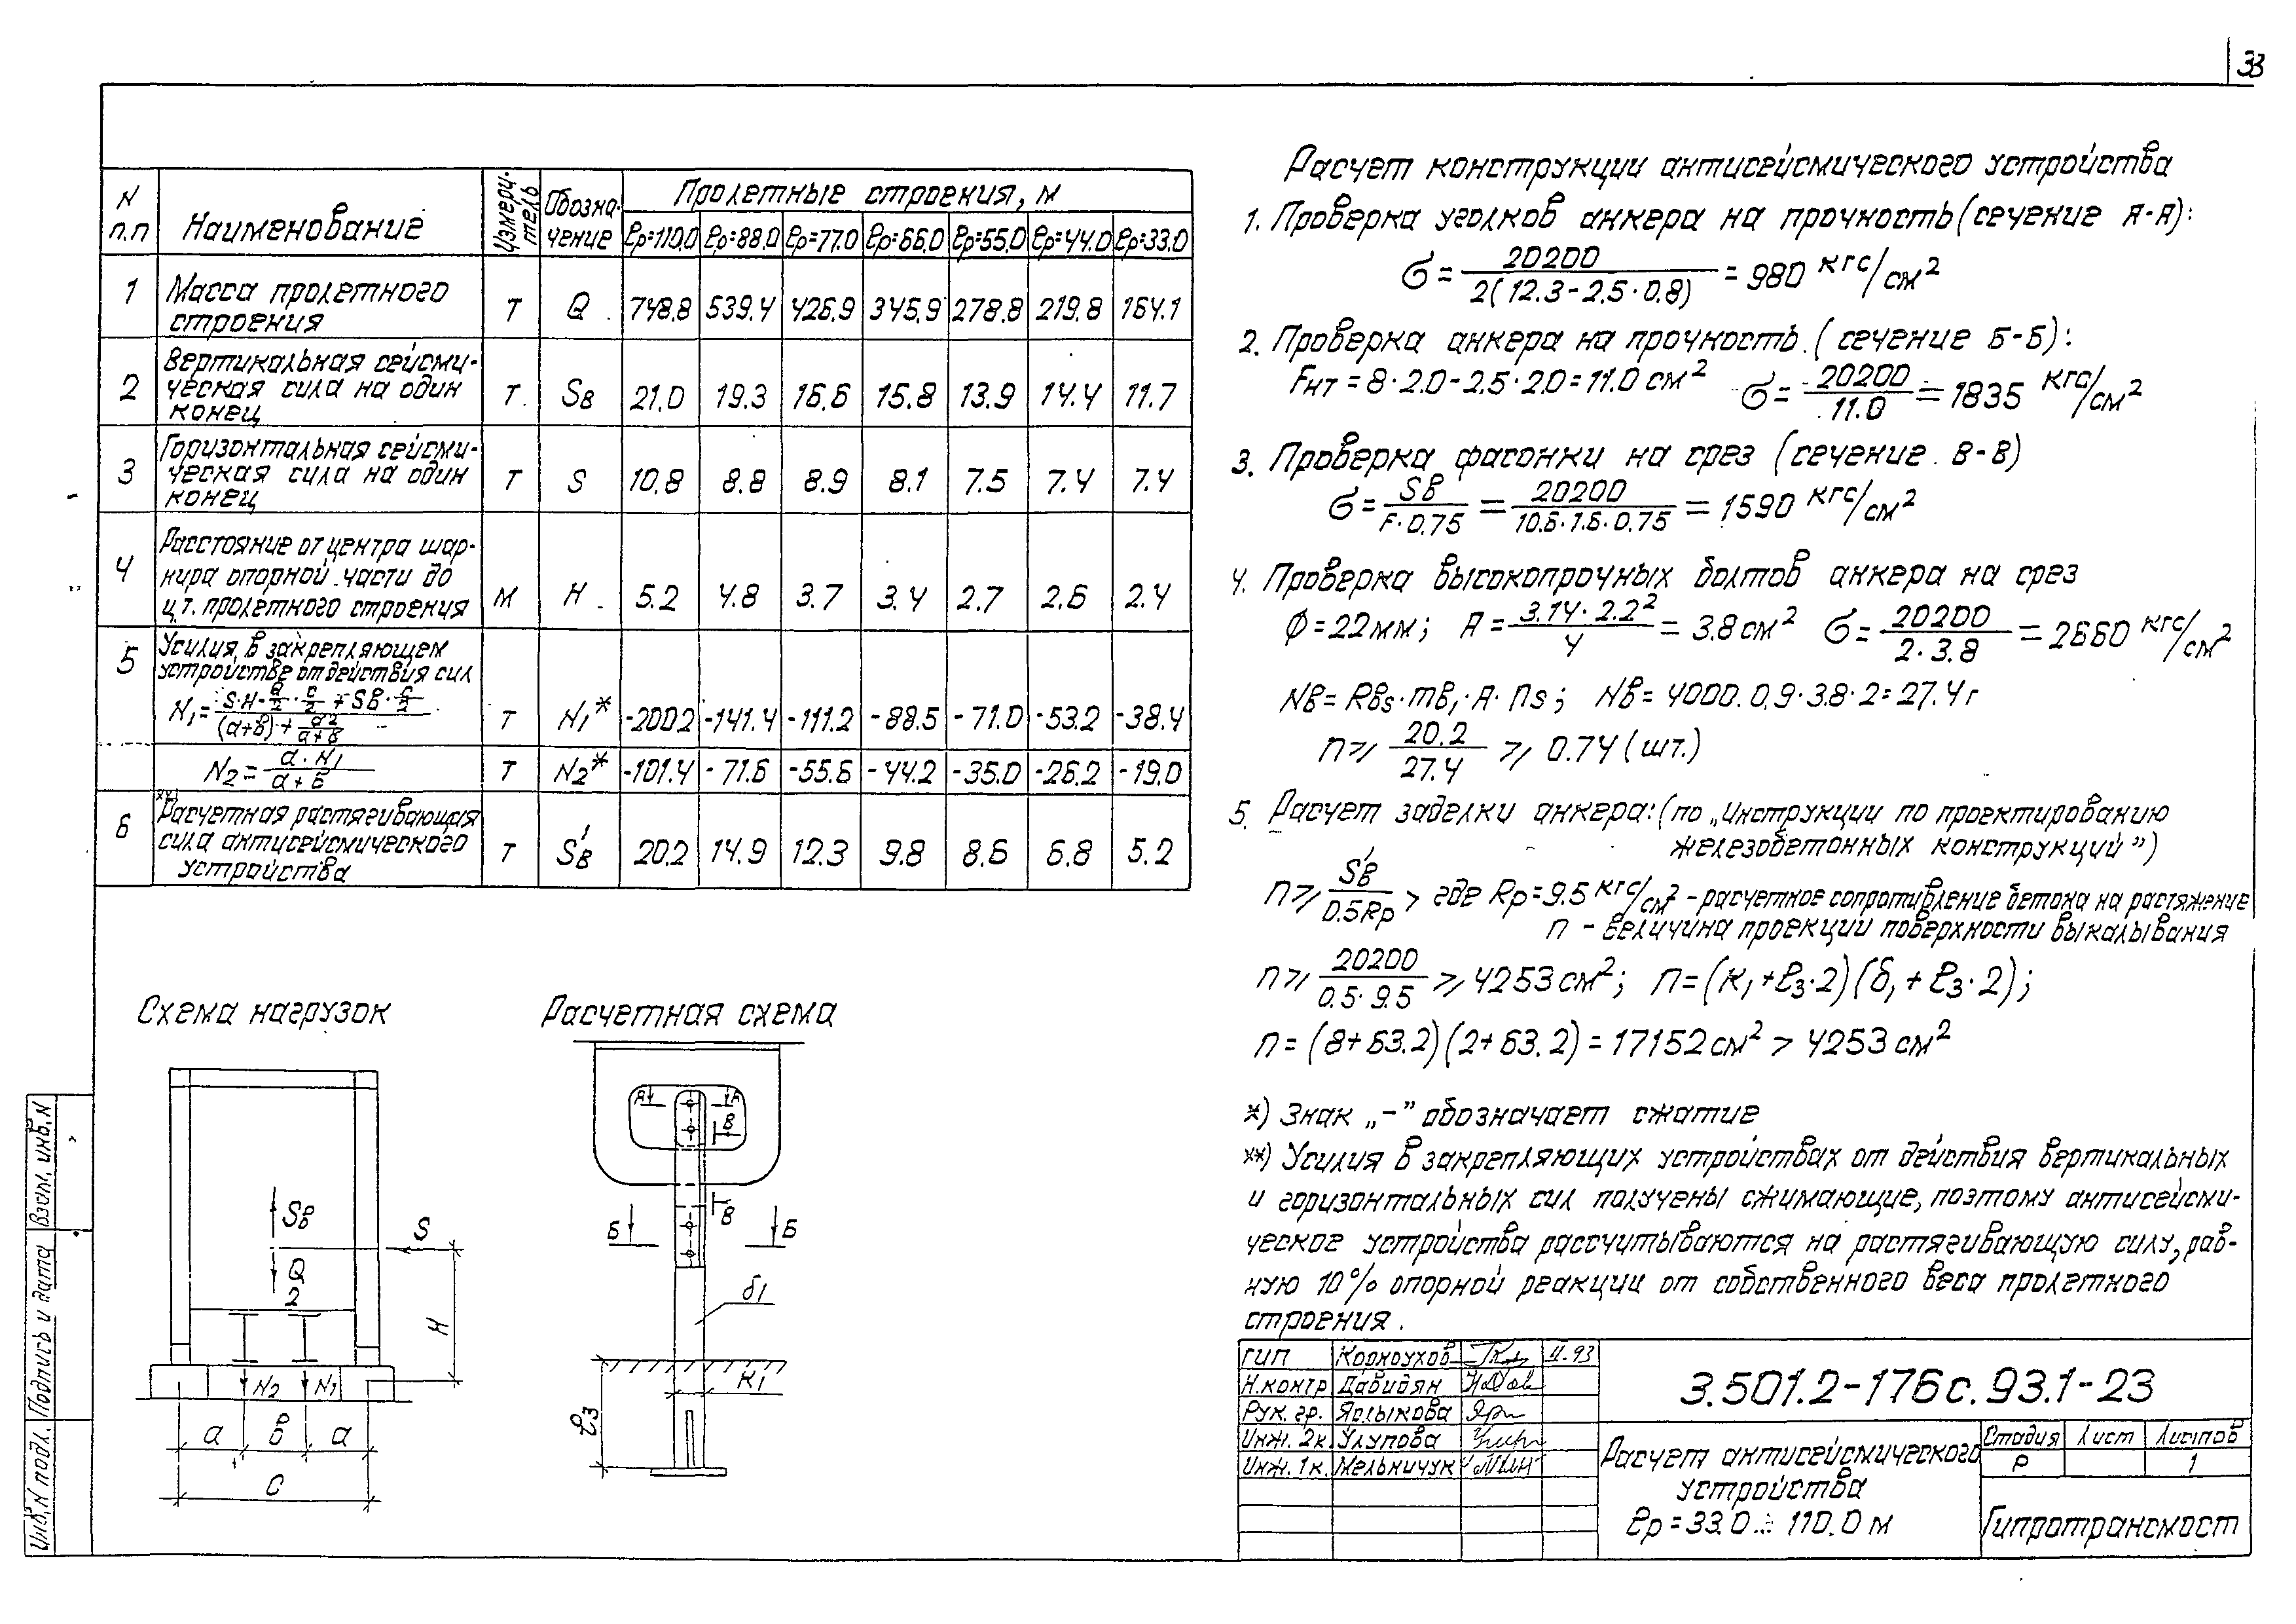 33
N п.п
Наименование
Измеритель
Обозначение
Пролетные строения, м
ℓр=110.0 ℓр=88.0 ℓр=77.0 ℓр=66.0 ℓр=55.0 ℓр=44.0 ℓр=33.0
1 Масса пролетного строения Т Q 748.8 539.4 426.9 345.9 278.8 219.8 164.1
2 Вертикальная сейсмическая сила на один конец Т Sв 21.0 19.3 16.6 15.8 13.9 14.4 11.7
3 Горизонтальная сейсмическая сила на один конец Т S 10.8 8.8 8.9 8.1 7.5 7.4 7.4
4 Расстояние от центра шарнира опорной части до ц.т. пролетного строения М H 5.2 4.8 3.7 3.4 2.7 2.6 2.4
5 Усилия в закрепляющем устройстве от действия сил
Т N1* -200.2 -141.4 -111.2 -88.5 -71.0 -53.2 -38.4
N2 = a·N1/(a+в) Т N2* -101.4 -71.6 -55.6 -44.2 -35.0 -26.2 -19.0
6 **) Расчетная растягивающая сила антисейсмического устройства Т S'в 20.2 14.9 12.3 9.8 8.6 6.8 5.2
Схема нагрузок
Sв
S
Q
2
H
N2 N1
a в a
c
Расчетная схема
А А
В
В
Б Б
δ1
к1
ℓз
Расчет конструкции антисейсмического устройства
1. Проверка уголков анкера на прочность (сечение А-А):
σ = 20200/2(12.3-2.5·0.8) = 980 кгс/см²
2. Проверка анкера на прочность. (сечение Б-Б):
Fнт = 8·2.0-2.5·2.0 = 11.0 см² σ = 20200/11.0 = 1835 кгс/см²
3. Проверка фасонки на срез (сечение В-В)
σ = Sв/F·0.75 = 20200/10.6·1.6·0.75 = 1590 кгс/см²
4. Проверка высокопрочных болтов анкера на срез
Ф=22мм; А = 3.14·2.2²/4 = 3.8 см² σ = 20200/2·3.8 = 2660 кгс/см²
Nв = Rвs·mв1·А·ns; Nв = 4000.0.9·3.8·2 = 27.4 г
n ⩾ 20.2/27.4 ⩾ 0.74 (шт.)
5. Расчет заделки анкера: (по „Инструкции по проектированию
железобетонных конструкций”)
П ⩾ S'в/0.5Rр, где Rр = 9.5 кгс/см² - расчетное сопротивление бетона на растяжение
П - величина проекции поверхности выкалывания
П ⩾ 20200/0.5·9.5 ⩾ 4253 см²; П = (к1+ℓз·2)(δ1+ℓз·2);
П = (8+63.2)(2+63.2) = 17152 см² > 4253 см²
*) Знак „-” обозначает сжатие
**) Усилия в закрепляющих устройствах от действия вертикальных
и горизонтальных сил получены сжимающие, поэтому антисейсми-
ческое устройства рассчитываются на растягивающую силу, рав-
ную 10% опорной реакции от собственного веса пролетного
строения.
ГИП Корноухов 11.93
Н.контр Давидян
Рук. гр. Ярлыкова
Инж. 2к. Улупова
Инж. 1к. Мельничук
3.501.2-176с.93.1-23
Расчет антисейсмического
устройства
ℓр = 33.0 ÷ 110.0 м
Стадия Лист Листов
Р 1
Гипротрансмост
Взам. инв. N
Подпись и дата
Инв. N подл.